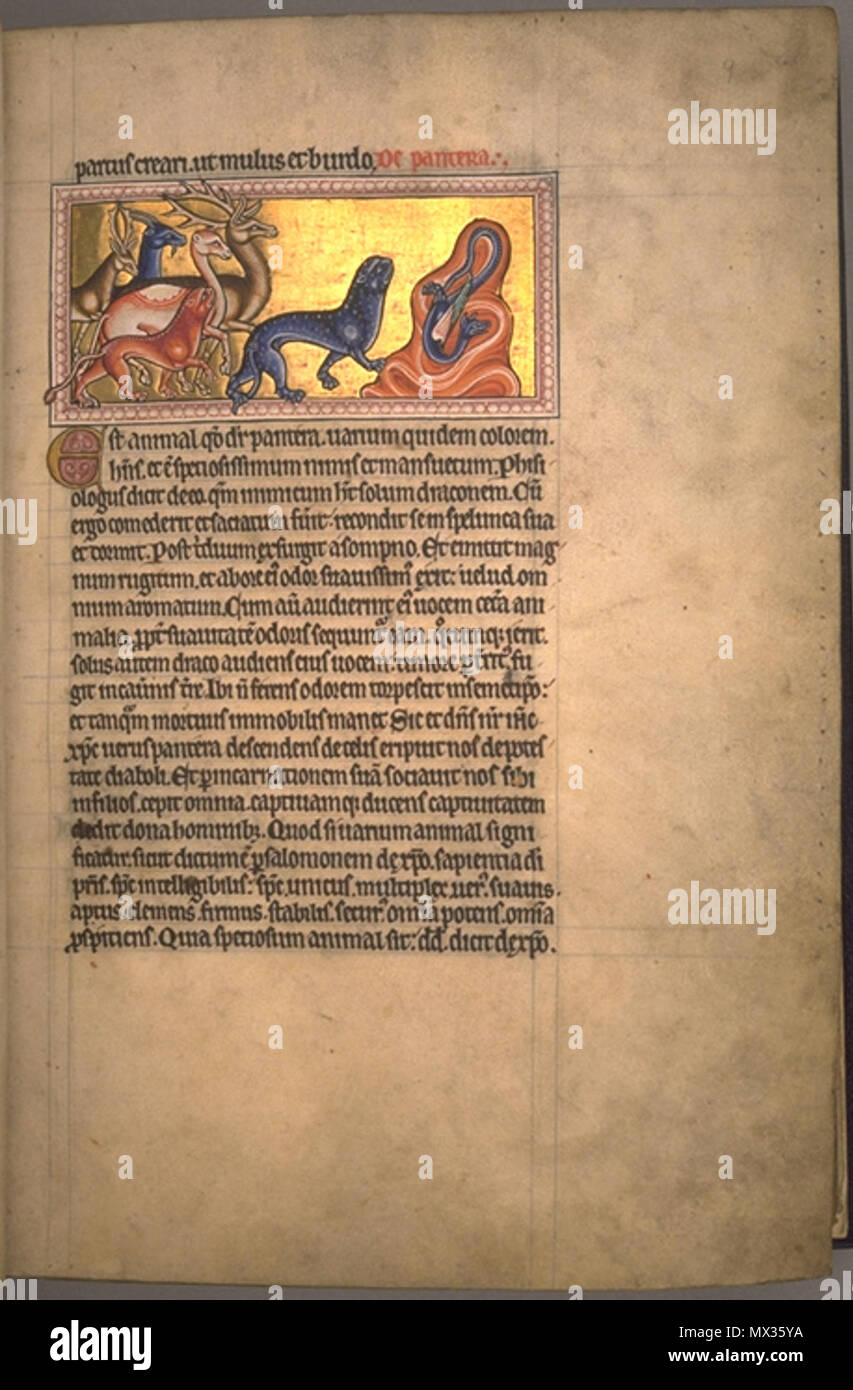 9
partus creari. ut mulus et burdo. De pantera.
Est animal qd dr pantera. uarium quidem colorem
hns. et e speciosissimum nimis et mansuetum. Phisi
ologus dicit de eo. qm inimicum ht solum draconem. Cu
ergo comederit et saciatum fuit. recondit se in spelunca sua
et dormit. Post triduum exsurgit a sompno. Et emittit mag
num rugitum. et ab ore ei odor suauissim exit. uelud om
nium aromatum. Cum au audierint ei uocem cetera ani
malia. ppt suauitate odoris sequunt eam. quocunq; ierit.
solus autem draco audiens eius uocem. timore fu
git in cauernis tre. Ibi n ferens odorem torpescit in semetipo.
et tanqm mortuus immobilis manet. Sic et dns nr ihc
xpc uerus pantera descendens de celis eripuit nos de potes
tate diaboli. Et p incarnationem sua sociauit nos sibi
in filios. cepit omnia. captiuam q; ducens captiuitatem
dedit dona hominibz. Quod si uarium animal signi
ficatur. sicut dictum e p salomonem de xpo. sapientia di
pris. spc intelligibilis. spc. unicus. multiplex. uer. suauis.
aptus. clemens. firmus. stabilis. secur. omia potens. omia
pspiciens. Quia speciosum animal sit. dd. dicit de xpo.
alamy
a
alamy
Image ID: MX35YA
www.alamy.com